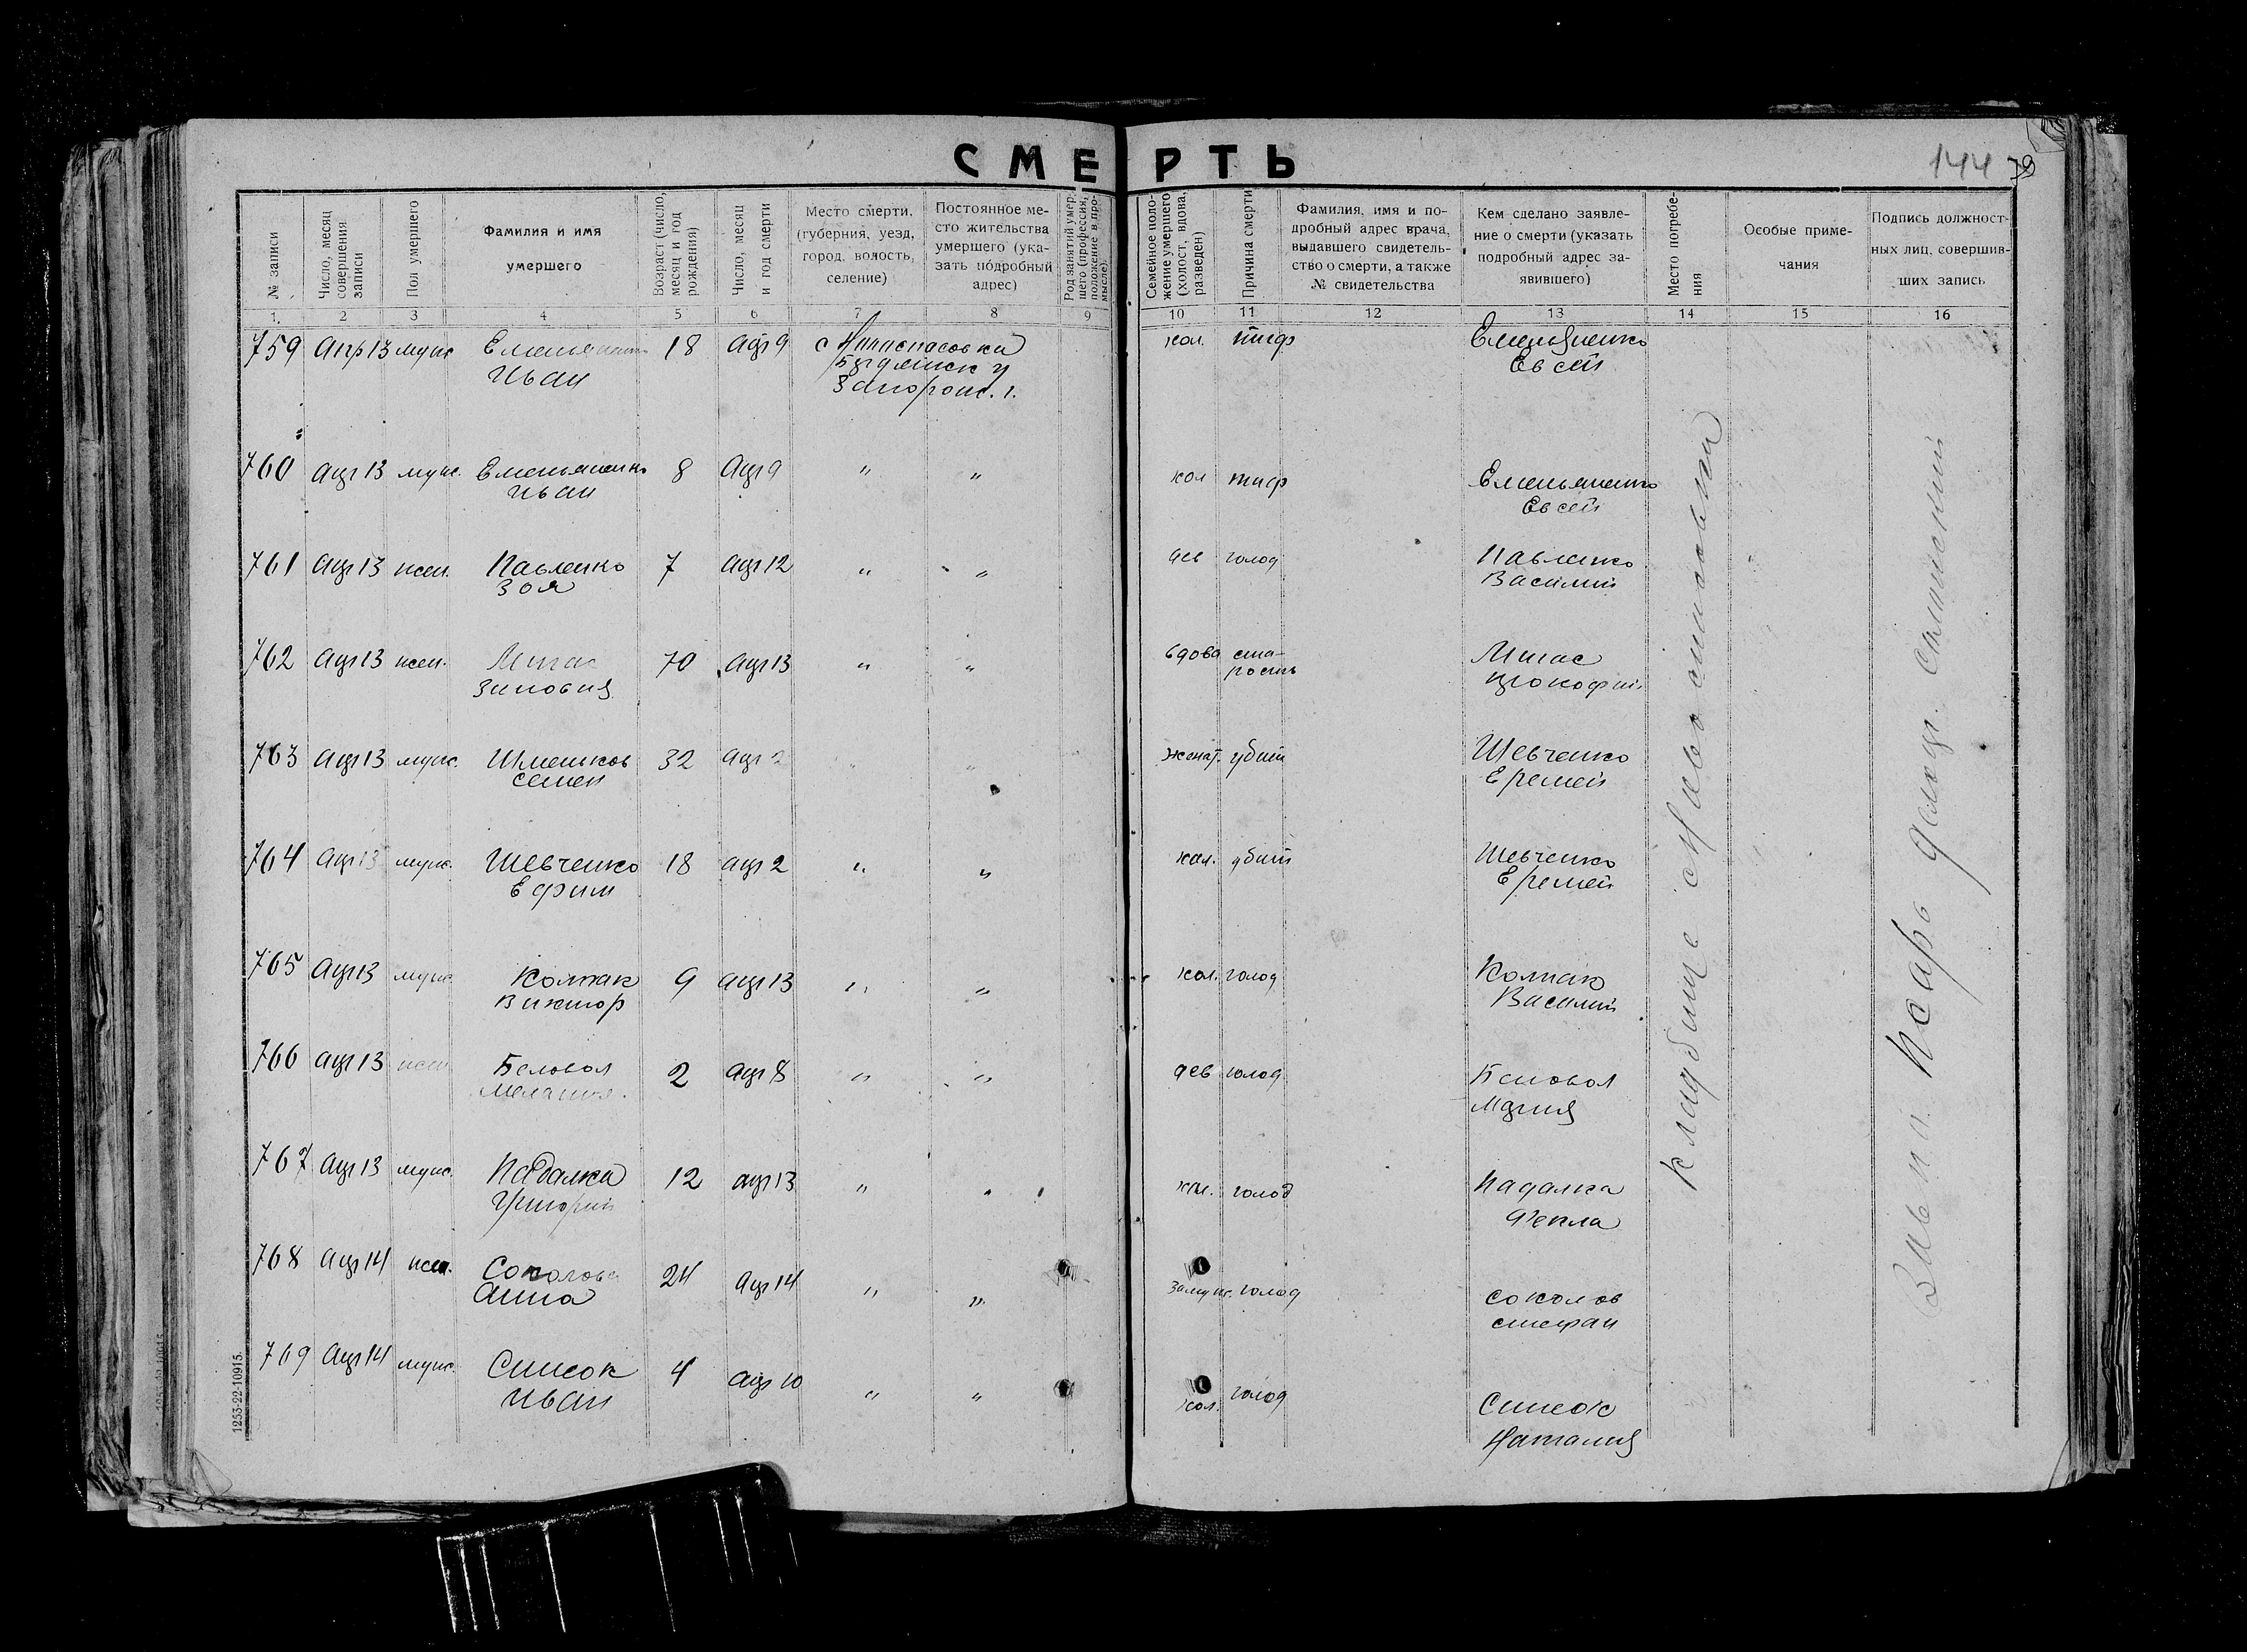 СМЕРТЬ
144 79
№ записи
Число, месяц совершения записи
Пол умершего
Фамилия и имя умершего
Возраст (число, месяц и год рождения)
Число, месяц и год смерти
Место смерти, (губерния, уезд, город, волость, селение)
Постоянное место жительства умершего (указать подробный адрес)
Род занятий умершего (профессия, положение в промысле).
Семейное положение умершего (холост, вдова, разведен)
Причина смерти
Фамилия, имя и подробный адрес врача, выдавшего свидетельство о смерти, а также № свидетельства
Кем сделано заявление о смерти (указать подробный адрес заявившего)
Место погребения
Особые примечания
Подпись должностных лиц, совершивших запись
1. 2 3 4 5 6 7 8 9 10 11 12 13 14 15 16
759 Апр 13 муж 18 апр 9 с хол. тиф Емельяненко
Иван Запорож. г. Евсей
760 апр 13 муж. Емельяненко 8 апр 9 " " хол тиф Емельяненко
Иван Евсей
761 апр 13 жен. Павленко 7 апр 12 " " дев голод Павленко
Зоя Василий
762 апр 13 жен. 70 апр 13 " " вдова ста-
Зиновия рость Прокофий
763 апр 13 муж. 32 апр 2 " " женат. убит Шевченко
Семен Еремей
764 апр 13 муж. Шевченко 18 апр 2 " " хол. убит Шевченко
Ефим Еремей
765 апр 13 муж. Колпак 9 апр 13 " " хол. голод Колпак
Виктор Василий
766 апр 13 жен Беловол 2 апр 8 " " дев голод Беловол
Мелания Мария
767 апр 13 муж. Падалка 12 апр 13 " хол. голод Падалка
Григорий Фекла
768 апр 14 жен. Соколова 24 апр 14 " " замуж. голод Соколов
Анна Стефан
769 апр 14 муж. 4 апр 10 " " хол. голод
Иван Наталия
Кладбище
1253-22-10915.